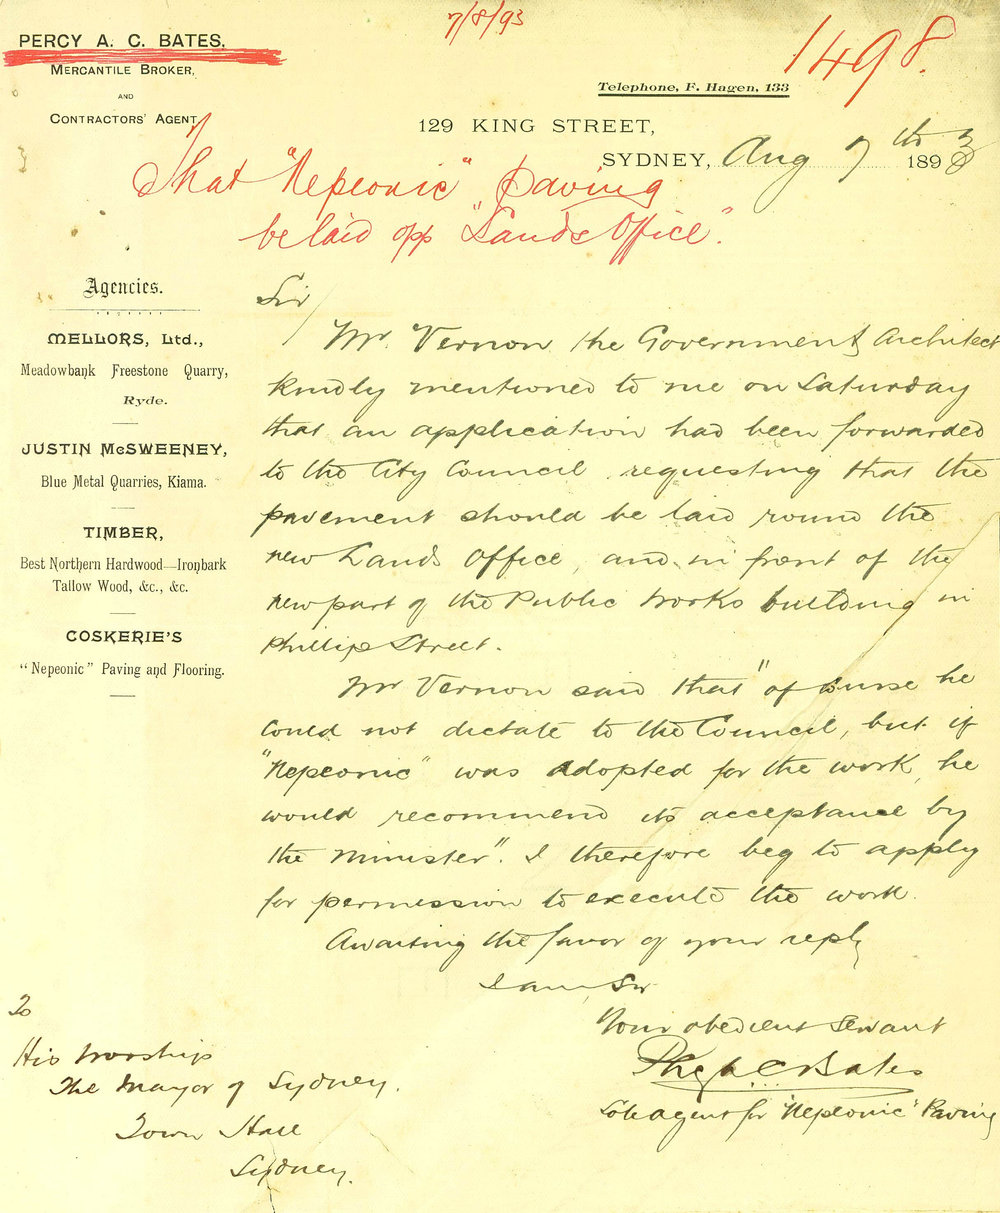 7/8/93
1498.
PERCY A. C. BATES.
MERCANTILE BROKER,
AND
CONTRACTORS' AGENT
Telephone, F. Hagen, 133
129 KING STREET,
SYDNEY, Aug 7th 1893
That "Nepeonic" paving
be laid opp "Lands Office".
Agencies.
MELLORS, Ltd.,
Meadowbank Freestone Quarry,
Ryde.
JUSTIN McSWEENEY,
Blue Metal Quarries, Kiama.
TIMBER,
Best Northern Hardwood—Ironbark
Tallow Wood, &c., &c.
COSKERIE'S
"Nepeonic" Paving and Flooring.
Sir
Mr. Vernon the Government Architect
kindly mentioned to me on Saturday
that an application had been forwarded
to the City Council requesting that the
pavement should be laid round the
new Lands Office, and in front of the
new part of the Public Works building in
Phillip Street.
Mr Vernon said that "of course he
could not dictate to the Council, but if
"Nepeonic" was adopted for the work, he
would recommend its acceptance by
the Minister". I therefore beg to apply
for permission to execute the work.
Awaiting the favor of your reply
I am, Sir
Your obedient servant
Percy A C Bates
Sole agent for "Nepeonic" Paving
To
His Worship
The Mayor of Sydney.
Town Hall
Sydney.